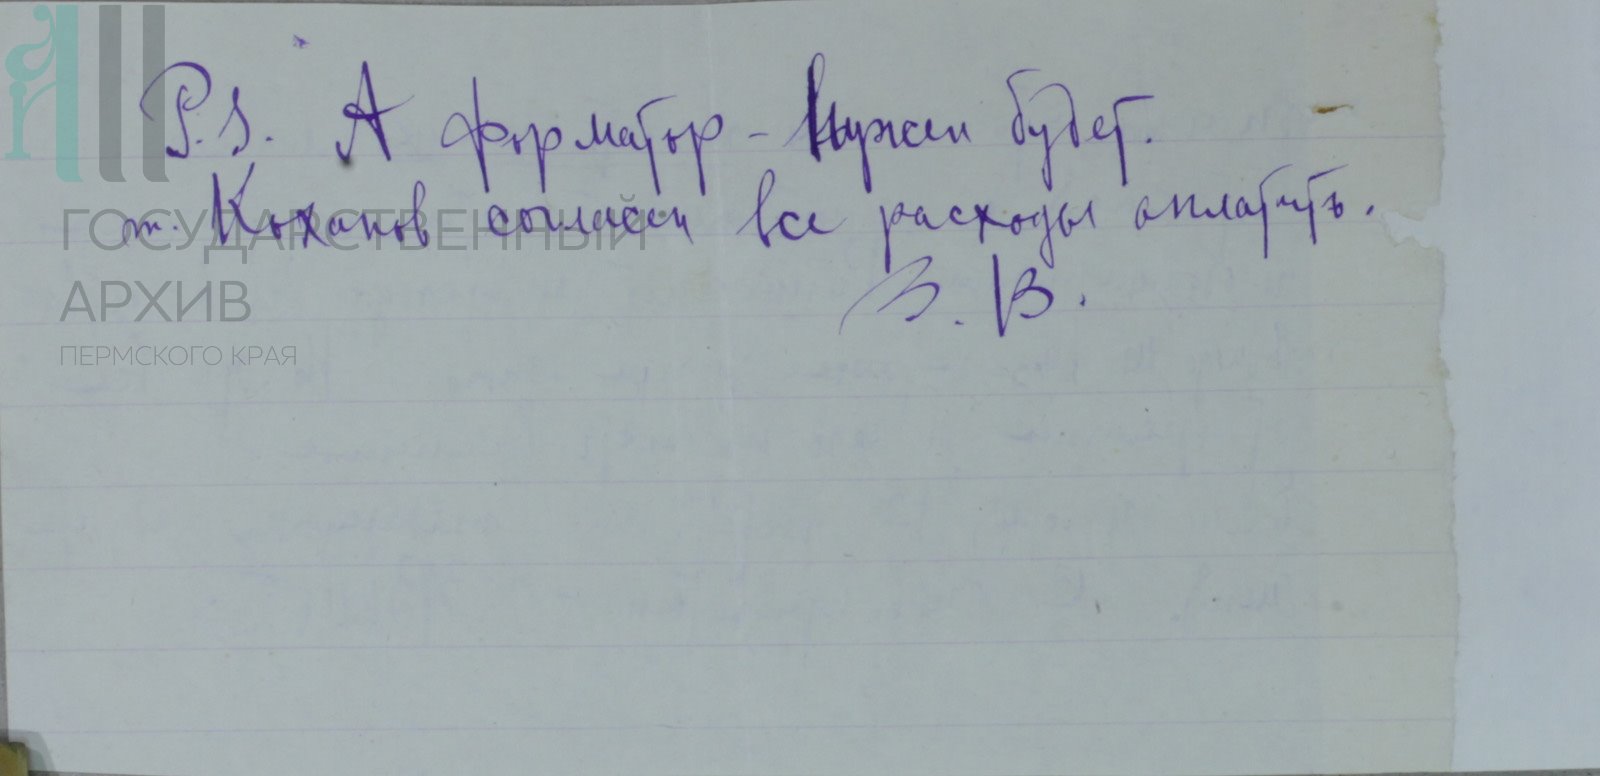 P.S. А форматор - нужен будет.
т. Коханов согласен все расходы оплатить.
З. В.
ГОСУДАРСТВЕННЫЙ
АРХИВ
ПЕРМСКОГО КРАЯ